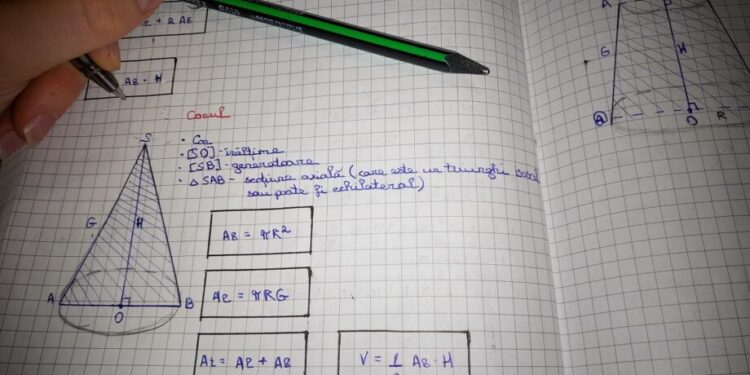 Aℓ + 2 Ab
Ab · H
Conul
[SO] - înălțime
[SB] - generatoare
△ SAB - secțiune axială (care este un triunghi
sau poate fi echilateral)
S
G
H
A
O
B
Ab = πR²
Aℓ = πRG
At = Aℓ + Ab
V = 1 Ab · H
A
G
H
B
O
R